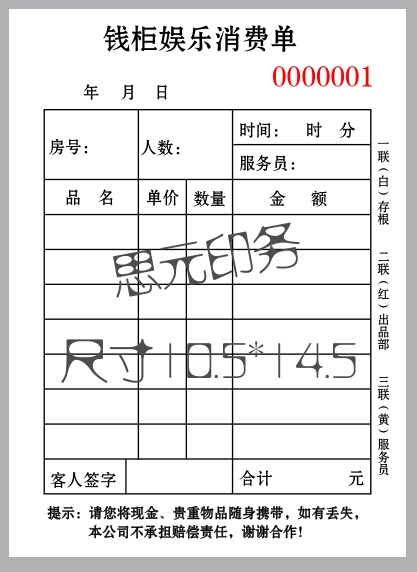 钱柜娱乐消费单
0000001
年 月 日
房号：
人数：
时间： 时 分
服务员：
品 名
单价
数量
金 额
思元印务
尺寸10.5*14.5
客人签字
合计 元
一联（白）存根
二联（红）出品部
三联（黄）服务员
提示：请您将现金、贵重物品随身携带，如有丢失，
本公司不承担赔偿责任，谢谢合作！